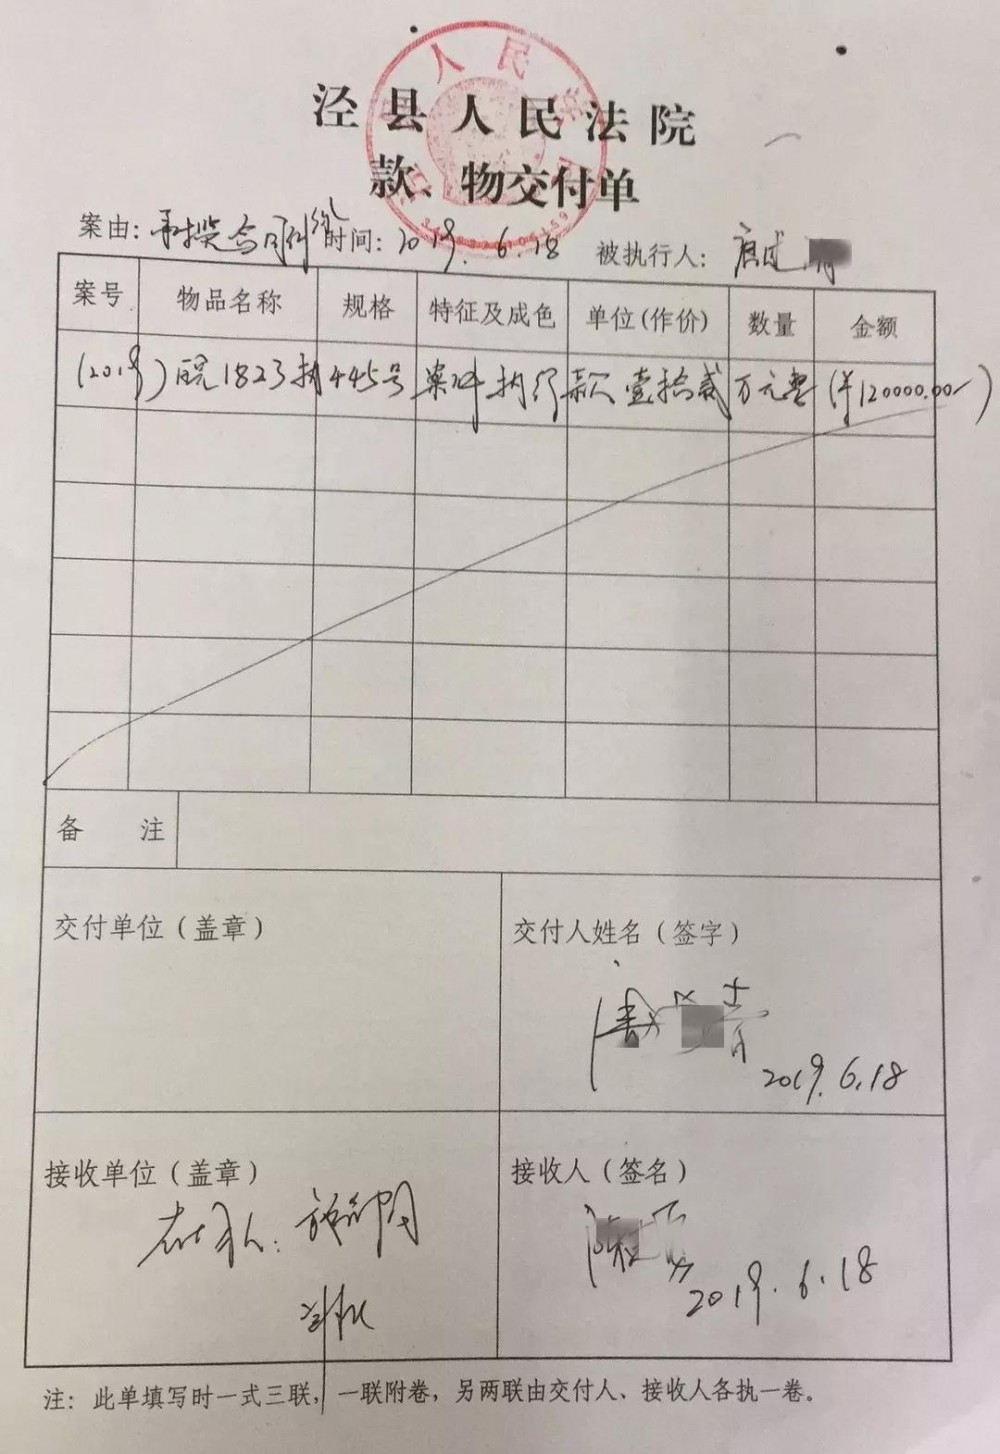 泾县人民法院
款、物交付单
案由： 时间：2019.6.18 被执行人：
案号 物品名称 规格 特征及成色 单位(作价) 数量 金额
(2019)皖1823执445号案件执行款壹拾贰万元整(¥120000.00)
备 注
交付单位（盖章） 交付人姓名（签字）
2019.6.18
接收单位（盖章） 接收人（签名）
在场人：
2019.6.18
注：此单填写时一式三联，一联附卷，另两联由交付人、接收人各执一卷。